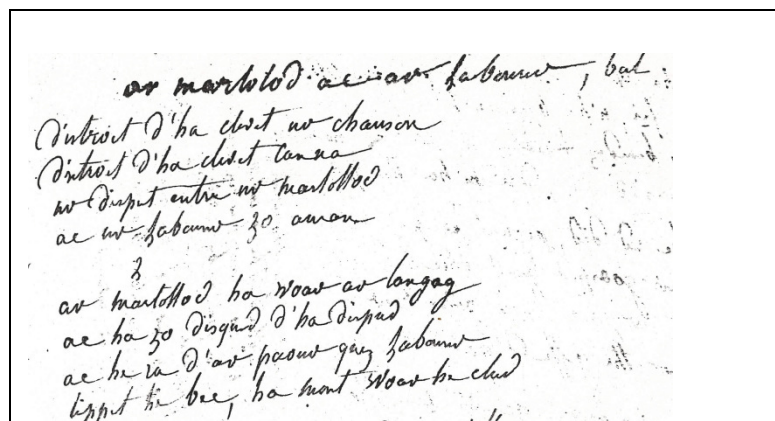 ar martolod ac ar labourer, bal
distroit d'ha clevet ur chanson
distroit d'ha clevet canna
ur disput entre ur martollod
ac ur labourer zo aman
2
ar martollod ha woar ar langag
ac ha zo disquet d'ha disput
ac he ra d'ar paour quez labourer
lippet he bec, ha mont woar he clud